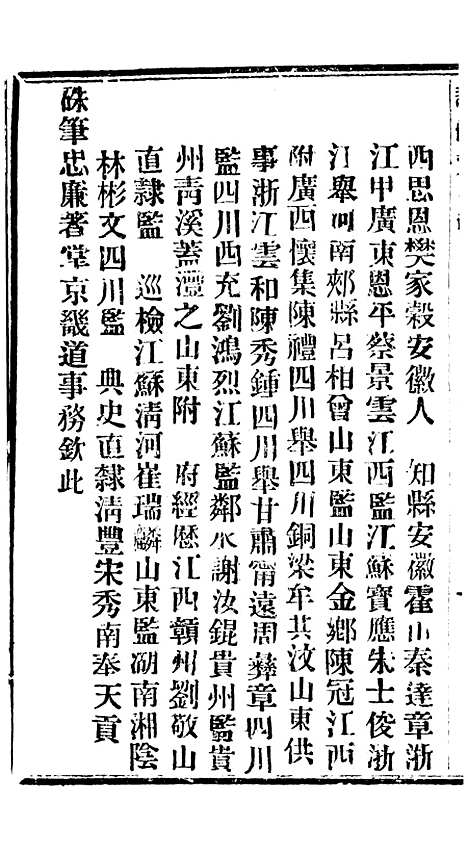 西思恩樊家穀安徽人　知縣安徽霍山秦達章浙
江甲廣東恩平蔡景雲江西監江蘇寶應朱士俊浙
江舉河南郟縣呂相曾山東監山東金鄉陳冠江西
附廣西懷集陳禮四川舉四川銅梁牟其汶山東供
事浙江雲和陳秀鍾四川舉甘肅甯遠周彝章四川
監四川西充劉鴻烈江蘇監鄰水謝汝錕貴州監貴
州靑溪蓋灃之山東附　府經歷江西贛州劉敬山
直隸監　巡檢江蘇淸河崔瑞麟山東監湖南湘陰
林彬文四川監　典史直隸淸豐宋秀南奉天貢
硃筆忠廉著掌京畿道事務欽此